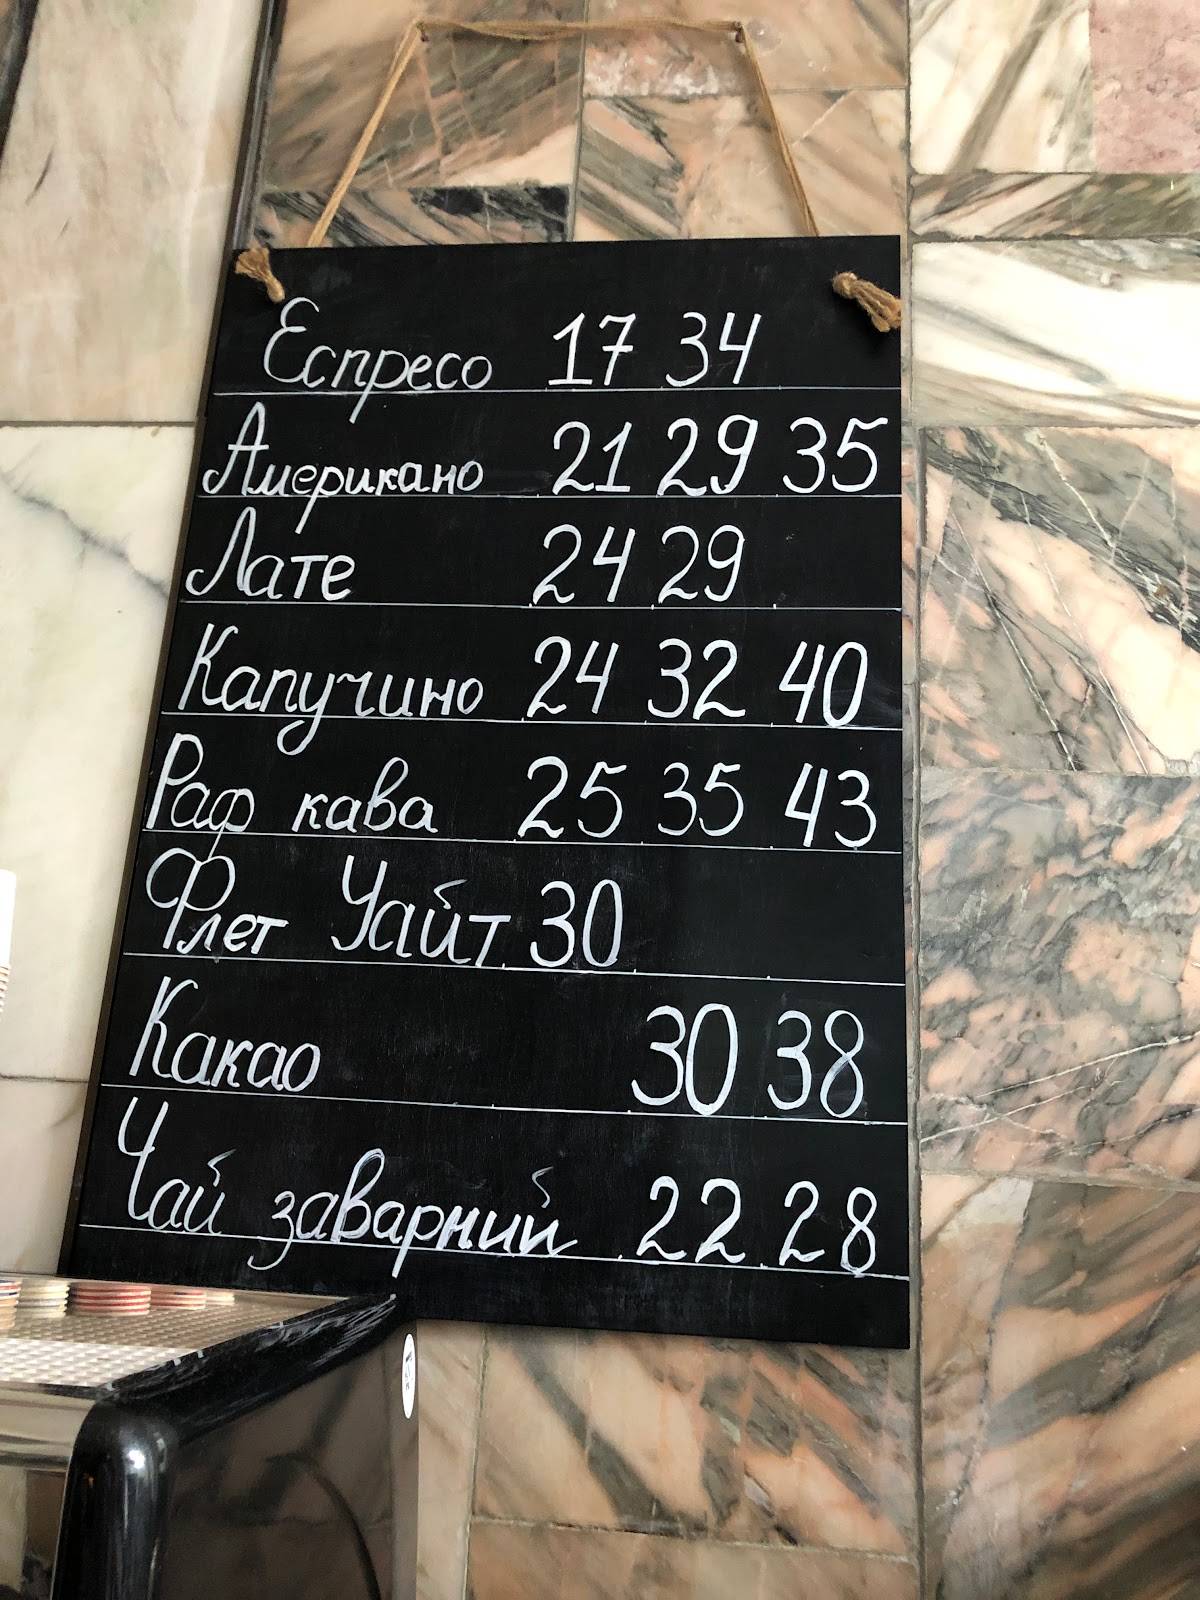 Еспресо 17 34
Американо 21 29 35
Лате 24 29
Капучино 24 32 40
Раф кава 25 35 43
Флет Уайт 30
Какао 30 38
Чай заварний 22 28